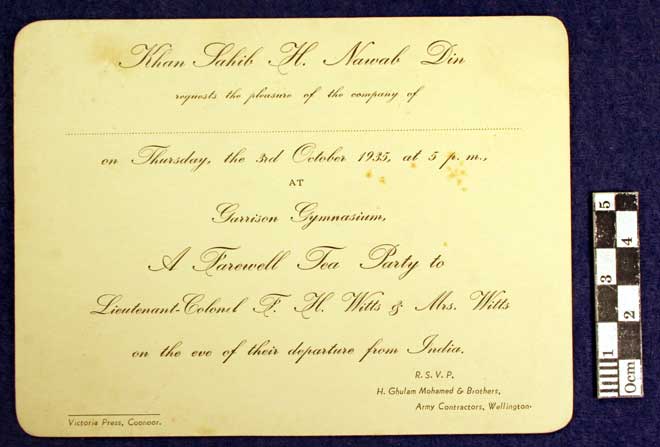 Khan Sahib H. Nawab Din
requests the pleasure of the company of
on Thursday, the 3rd October 1935, at 5 p. m.,
AT
Garrison Gymnasium,
A Farewell Tea Party to
Lieutenant-Colonel F. H. Witts & Mrs. Witts
on the eve of their departure from India.
R. S. V. P.
H. Ghulam Mohamed & Brothers,
Army Contractors, Wellington.
Victoria Press, Coonoor.
5
4
3
2
1
0cm